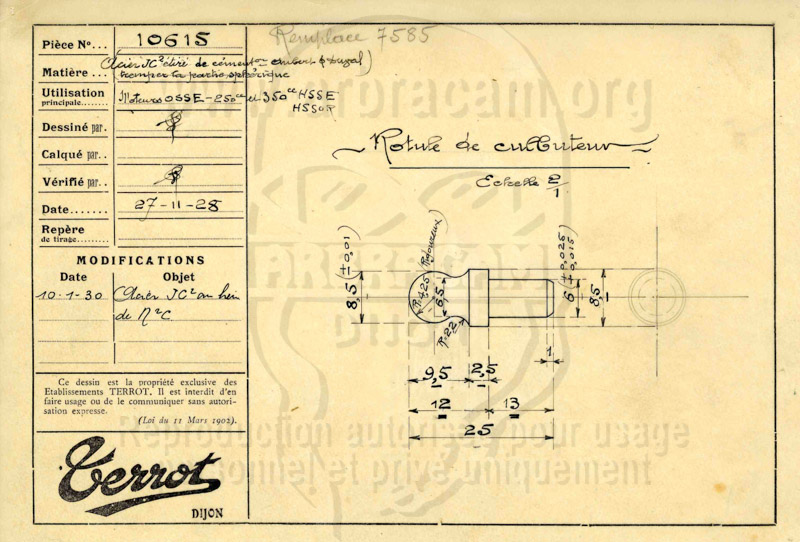 Remplace 7585
Pièce No... 10615
Matière... Acier JC² étiré de cémenton
tremper la partie sphérique
Utilisation principale... Moteurs OSSE-250cc et 350cc HSSE
HSSOR
Dessiné par.
Calqué par..
Vérifié par..
Date....... 27-11-28
Repère de tirage...
MODIFICATIONS
Date Objet
10-1-30 Acier JC² au lieu
de N²C
Ce dessin est la propriété exclusive des
Etablissements TERROT. Il est interdit d'en
faire usage ou de le communiquer sans autori-
sation expresse.
(Loi du 11 Mars 1902).
Terrot
DIJON
Rotule de culbuteur
Echelle 2/1
8,5 (± 0,01)
R=4,25 (Rigoureux)
6,5
R=2,2
6 (+0,025 +0,015)
8,5
1
9,5 2,5
12 13
25
www.arbracam.org
ARBRACAM
DIJON
Reproduction autorisée pour usage
personnel et privé uniquement